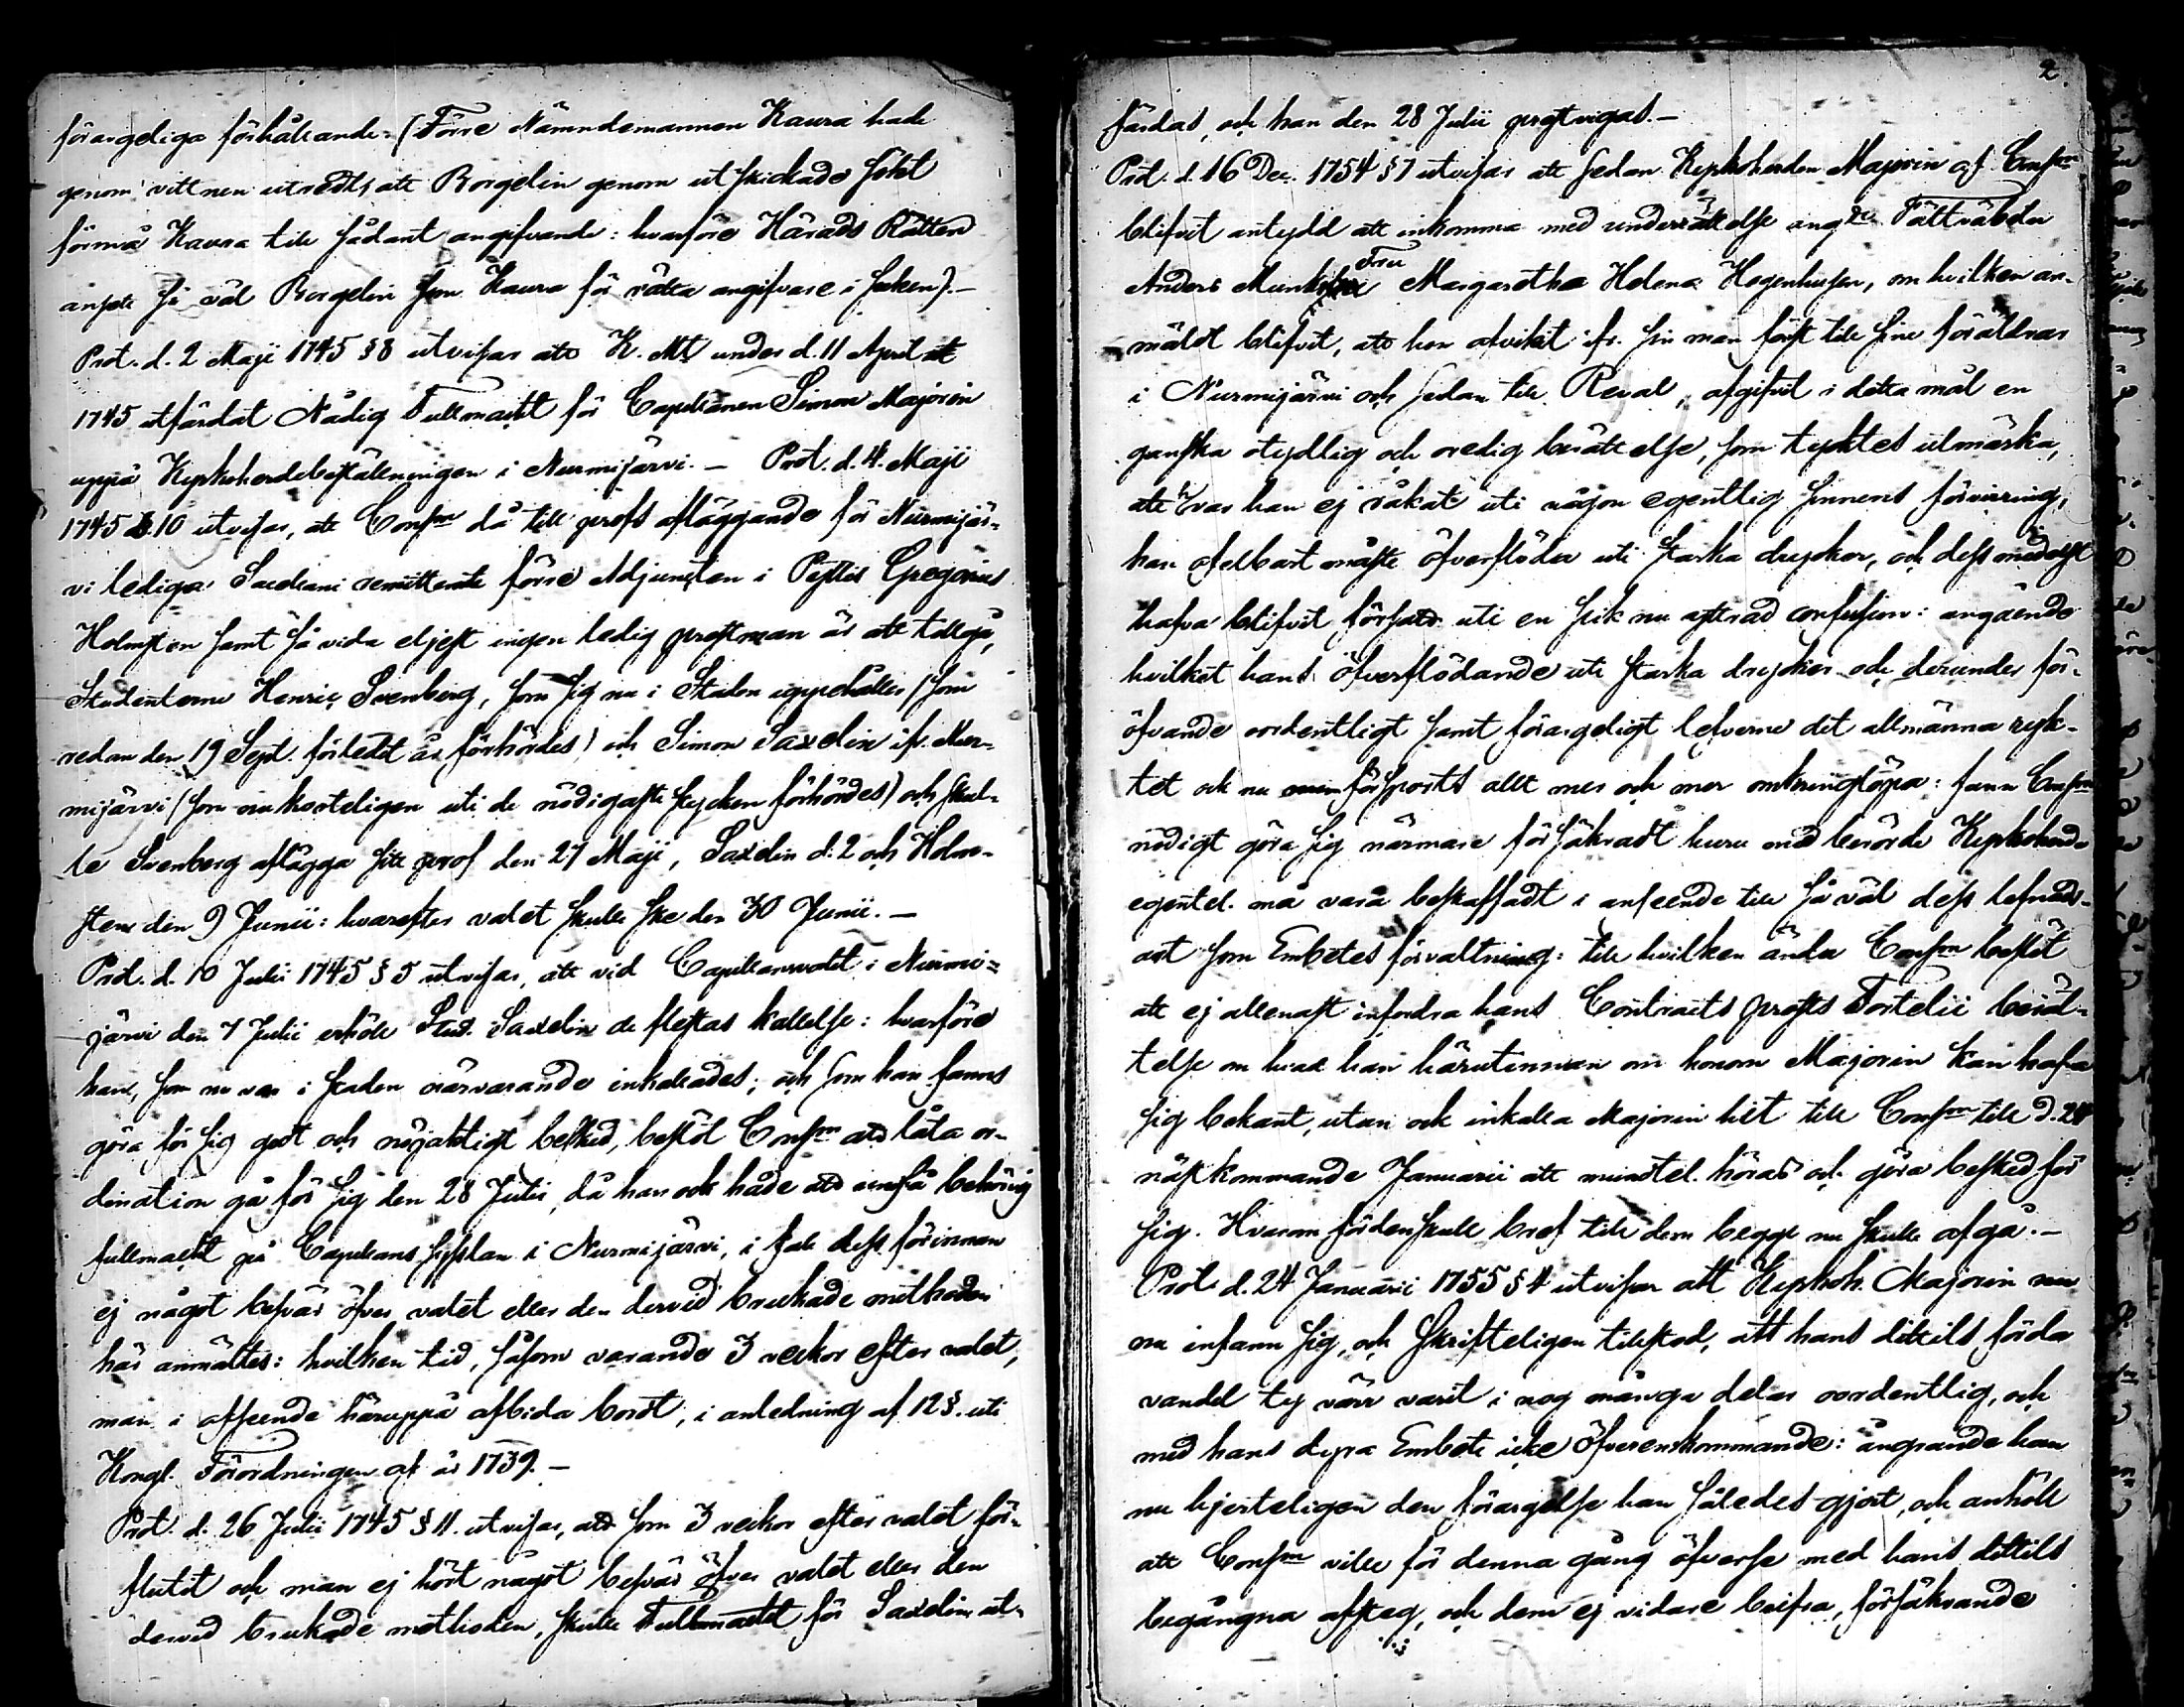 förargeliga förhållande: (Förre Nämndemannen Kaura hade
genom vittnen utredt, att Borgelin genom utskickade sökt
förmå Kaura till sådant angifvande: hvarföre Härads Rätten
ansett så väl Borgelin som Kaura för rätta angifvare i saken).—
Prot. d. 2 Maji 1745 § 8 utvisar att K. Mt under d. 11 April
1745 utfärdat Nådig Fullmackt för Capellanen Simon Majorin
uppå Kyrkoherdebeställningen i Nurmijärvi.— Prot. d. 4. Maji
1745 § 10 utvisar, att Consm då till profs afläggande för Nurmijär-
vi lediga Sacellani remitterade förre Adjuncten i Pyttis Gregorius
Holmsten samt så vida eljest ingen ledig prestman är att tillgå,
Studenterne Henric Svenberg, som sig nu i Staden uppehåller (som
redan den 19 Sept. förledit år förhördes) och Simon Saxelin ifr. Nur-
mijärvi (som nu korteligen uti de nödigaste stycken förhördes) och skul-
le Svenberg aflägga sitt prof den 27 Maji, Saxelin d. 2 och Holm-
sten den 9 Junii: hvarefter valet skulle ske den 30 Junii.—
Prot. d. 10 Julii 1745 § 5 utvisar, att vid Capellansvalet i Nurmi=
järvi den 7 Julii erhöll Stud. Saxelin de flestas kallelse: hvarföre
han, som nu var i staden närvarande inkallades; och som han fanns
göra för sig godt och nöjaktigt besked, beslöt Consm att låta or-
dination gå för sig den 28 Julii, då han ock hade att undfå behörig
fullmackt på Capellans sysslan i Nurmijärvi, i fall dess förinnan
ej något besvär öfver valet eller den dervid brukade methoden
här anmältes: hvilken tid, såsom varande 3 veckor efter valet,
man i afseende häruppå afbida bordt, i anledning af 12 §. uti
Kongl. Förordningen af år 1739.—
Prot. d. 26 Julii 1745 § 11. utvisar, att som 3 veckor efter valet för-
flutit och man ej hört något besvär öfver valet eller den
dervid brukade methoden, skulle Fullmackt för Saxelin ut-
2
färdas, och han den 28 Julii prestvigas.—
Prot. d. 16 Dec. 1754 § 7 utvisar att sedan Kyrkoherden Majorin af Consm
blifvit antydd att inkomma med underrättelse angde Fältväbelen
Anders Munks Fru Margaretha Helena Hogenhusen, om hvilken an-
mäldt blifvit, att hon afvikit ifr. sin man först till sine föräldrar
i Nurmijärvi och sedan till Reval, afgifvit i detta mål en
ganska otydlig och oredig berättelse, som tycktes utmärka,
att hvar han ej råkat uti någon egentlig sinnens förvirring,
han ofelbart måste öfverflöda uti starka drycker, och dess medelst
hafva blifvit försatt uti en slik nu spord confusion: angående
hvilket hans öfverflödande uti starka drycker och derunder för-
öfvande oordentligt samt förargeligt lefverne det allmänna ryk-
tet ock nu försports allt mer och mer omkringlöpa: fann Consm
nödigt göra sig närmare försäkradt huru med berörde Kyrkoherde
egentel. må vara beskaffadt i anseende till så väl dess lefnads-
art som Embetes förvaltning: till hvilken ända Consm beslöt
att ej allenast infordra hans Contracts prosts Fortelii berät-
telse om hvad han härutinnan om honom Majorin kan hafva
sig bekant, utan ock inkalla Majorin hit till Consm till d. 24
nästkommande Januarii att muntel. höras och göra besked för
sig. Hvarom fördenskull bref till dem begge nu skulle afgå.—
Prot. d. 24 Januarii 1755 § 4 utvisar att Kyrkoh. Majorin nu
nu infann sig, och skrifteligen tillstod, att hans dittils förda
vandel ty värr varit i nog många delar oordentlig, och
med hans dyra Embete icke öfverenskommande: ångrande han
nu hjerteligen den förargelse han således gjort, och anhöll
att Consm ville för denna gång öfverse med hans dittils
begångna afsteg, och dem ej vidare beifra, försäkrande